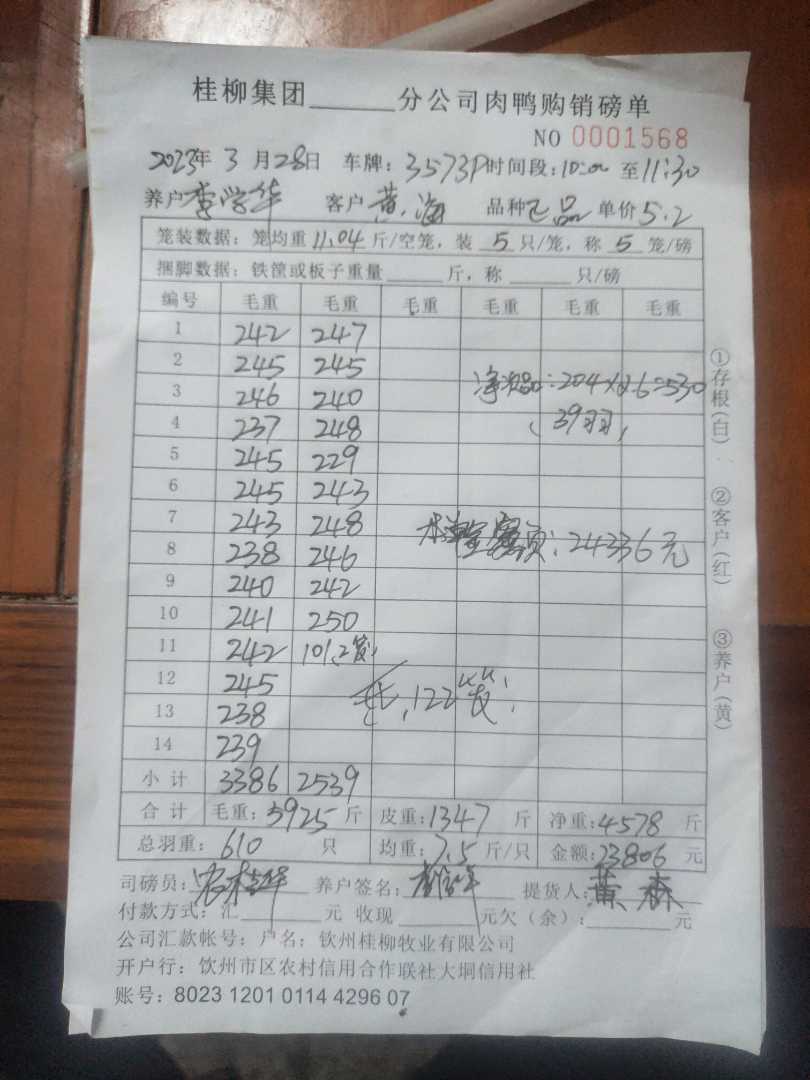 桂柳集团______分公司肉鸭购销磅单
NO 0001568
2023年 3 月 28日 车牌: 3573P 时间段: 10:00 至 11:30
养户 李学华 客户 黄海 品种 乙品 单价 5.2
笼装数据: 笼均重 11.04 斤/空笼, 装 5 只/笼, 称 5 笼/磅
捆脚数据: 铁筐或板子重量______斤, 称______只/磅
编号 毛重 毛重 毛重 毛重 毛重 毛重
1 242 247
2 245 245
3 246 240
4 237 248
5 245 229
6 245 243
7 243 248
8 238 246
9 240 242
10 241 250
11 242 101
12 245
13 238
14 239
净次品: 204×2.6=530
(39羽)
24336元
毛,122
小计 3386 2539
合计 毛重: 5925 斤 皮重: 1347 斤 净重: 4578 斤
总羽重: 610 只 均重: 7.5 斤/只 金额: 23806 元
司磅员: 养户签名: 提货人: 黄森
付款方式: 汇______元 收现______元欠(余):______元
公司汇款帐号: 户名: 钦州桂柳牧业有限公司
开户行: 钦州市区农村信用合作联社大垌信用社
账号: 8023 1201 0114 4296 07
①存根(白)
②客户(红)
③养户(黄)